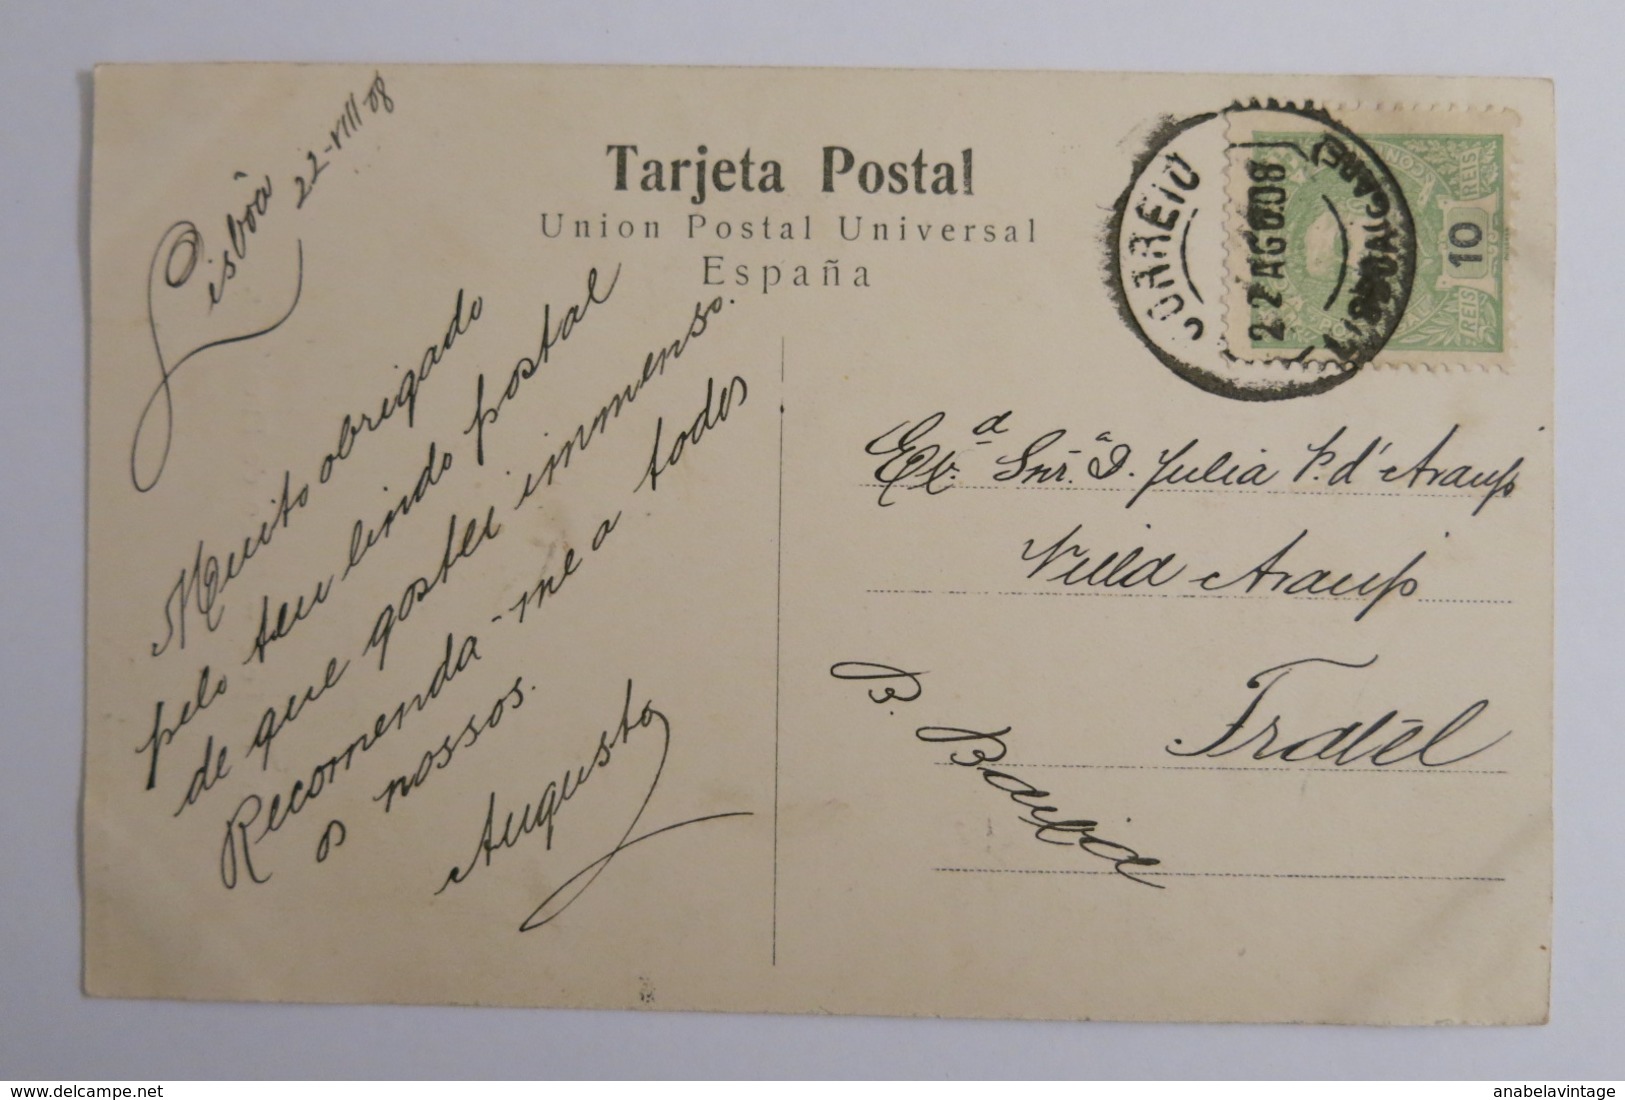 Tarjeta Postal
Union Postal Universal
España
Lisbôa 22-VIII-08
Muito obrigado
pelo teu lindo postal
de que gostei inmenso.
Recomenda-me a todos
os nossos.
Augusto
CORREIO
22 AGO 08
REIS
10
REIS
Snrª. D. Julia P. d'Araujo
Villa Araujo
Fratel
B. Baixa
delcampe.net
anabelavintage